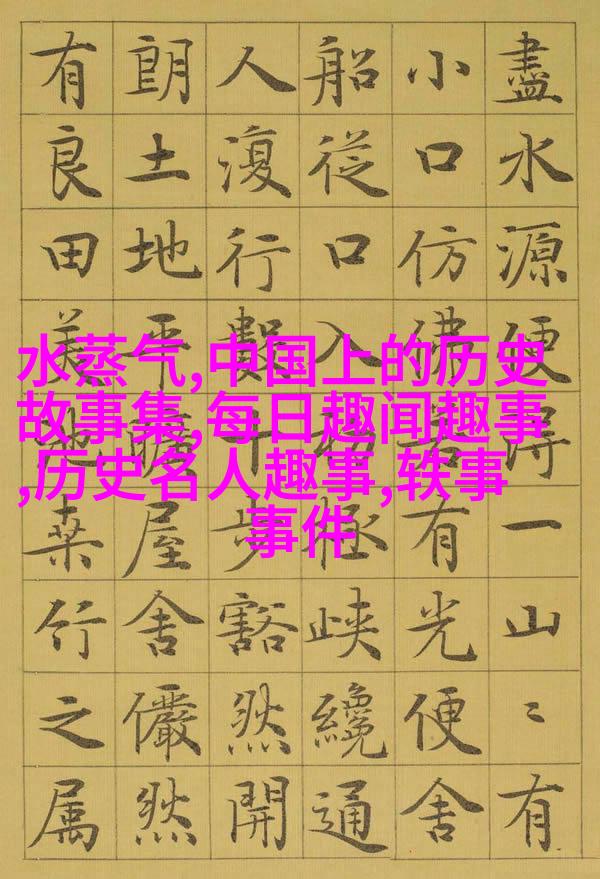 盡水源便得一山〻有
小口仿佛若有光便舍
船從口入初極峽纔通
人復行數十步豁然開
朗土地平曠屋舍儼然
有良田美池桑竹之属
水蒸气,中国上的历史
故事集,每日趣闻趣事
,历史名人趣事,轶事
事件